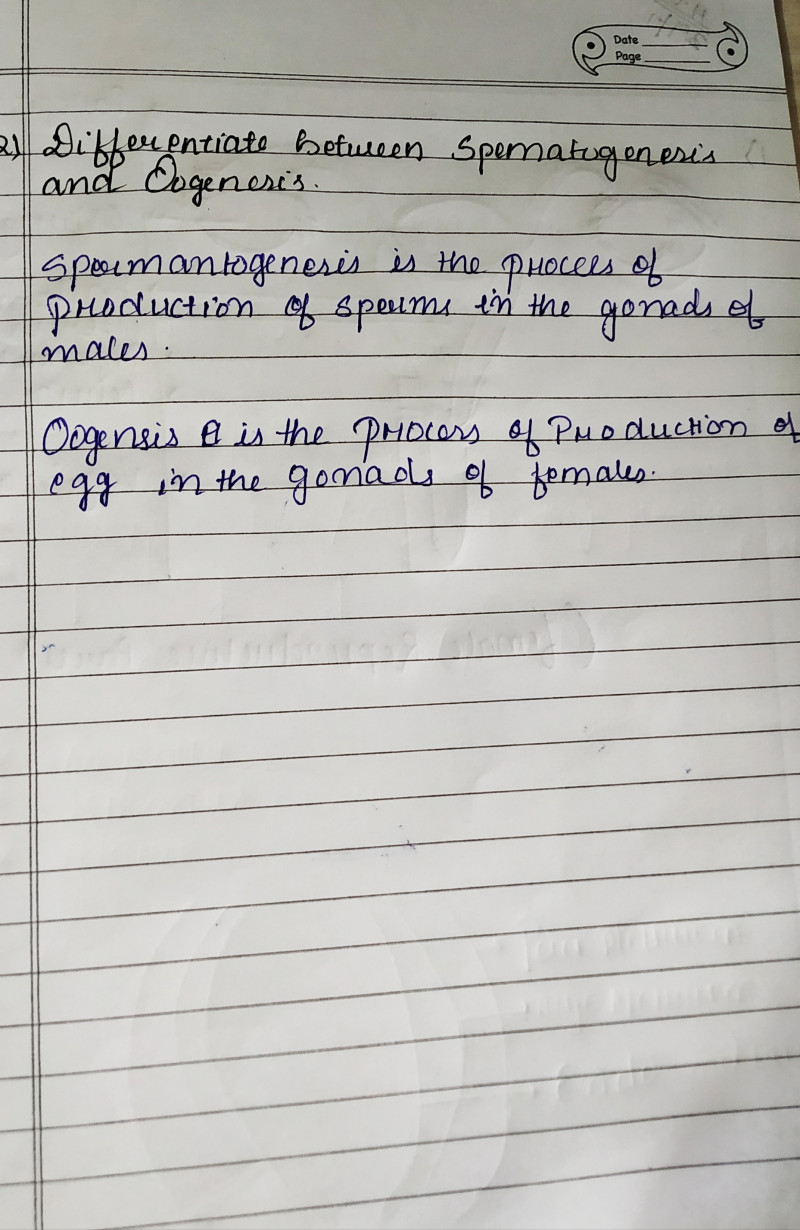 Date
Page
2) Differentiate between Spematogenesis
and Oogenesis.
Spermantogenesis is the process of
production of sperms in the gonads of
males.
Oogensis is the process of Production of
egg in the gonads of females.